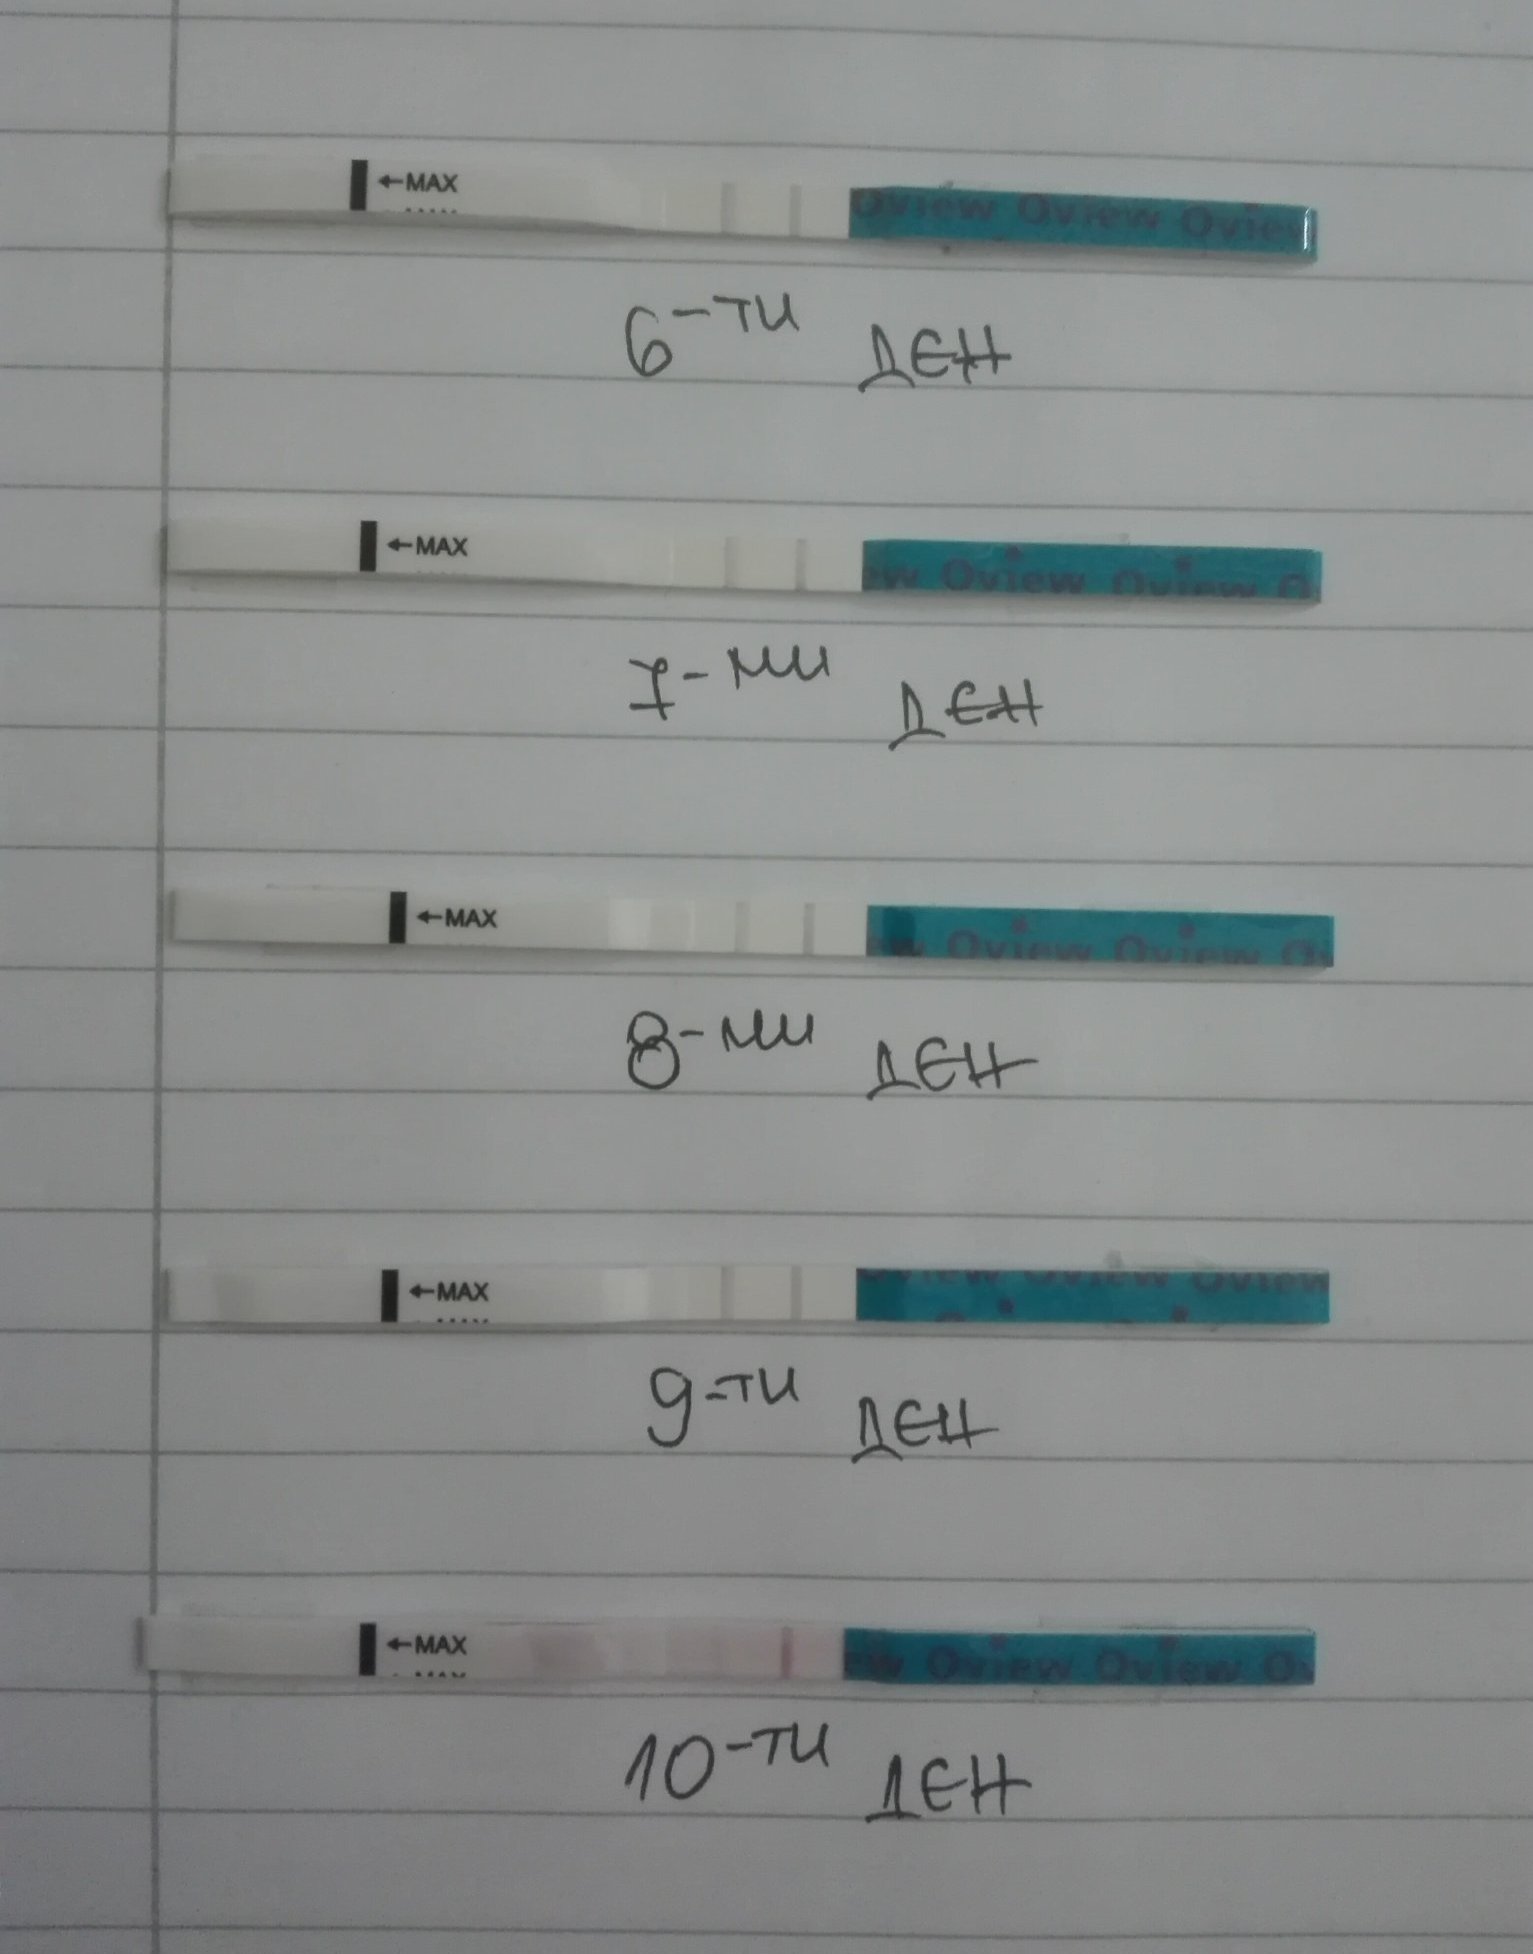 ←MAX
Oview Oview Oview
6-ти ДЕН
←MAX
ew Oview Oview O
7-ми ДЕН
←MAX
ew Oview Oview Ov
8-ми ДЕН
←MAX
Oview Oview Oview
9-ти ДЕН
←MAX
ew Oview Oview Ov
10-ти ДЕН